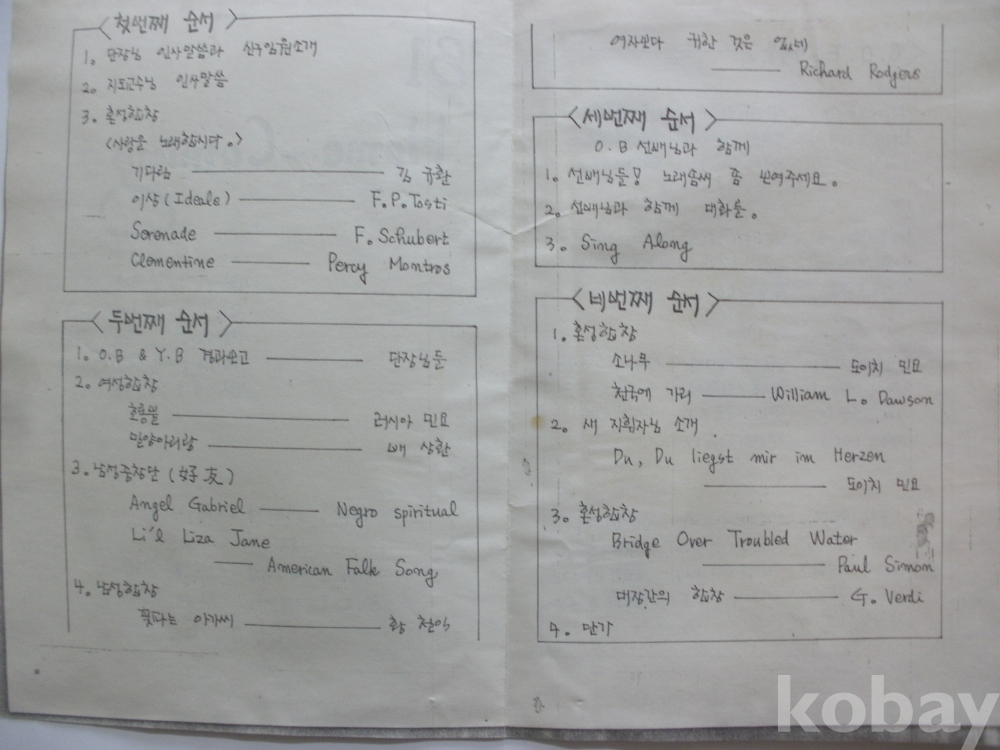 <첫번째 순서>
1. 단장님 인사말씀과 신구임원소개
2. 지도교수님 인사말씀
3. 혼성합창
<사랑을 노래합시다.>
기다림 김 규환
이상(Ideale) F.P.Tosti
Serenade F. Schubert
Clementine Percy Montros
<두번째 순서>
1. O.B & Y.B 경과보고 단장님들
2. 여성합창
호롱불 러시아 민요
밀양아리랑 배 상환
3. 남성중창단 (女子 友)
Angel Gabriel Negro spiritual
Li'l Liza Jane
American Falk Song
4. 남성합창
꽃파는 아가씨 황 철익
여자보다 귀한 것은 없네
Richard Rodgers
<세번째 순서>
O.B 선배님과 함께
1. 선배님들! 노래솜씨 좀 보여주세요.
2. 선배님과 함께 대화를.
3. Sing Along
<네번째 순서>
1. 혼성합창
소나무 도이치 민요
천국에 가리 William L. Dawson
2. 새 지휘자님 소개
Du, Du liegst mir im Herzen
도이치 민요
3. 혼성합창
Bridge Over Troubled Water
Paul Simon
대장간의 합창 G. Verdi
4. 단가
kobay